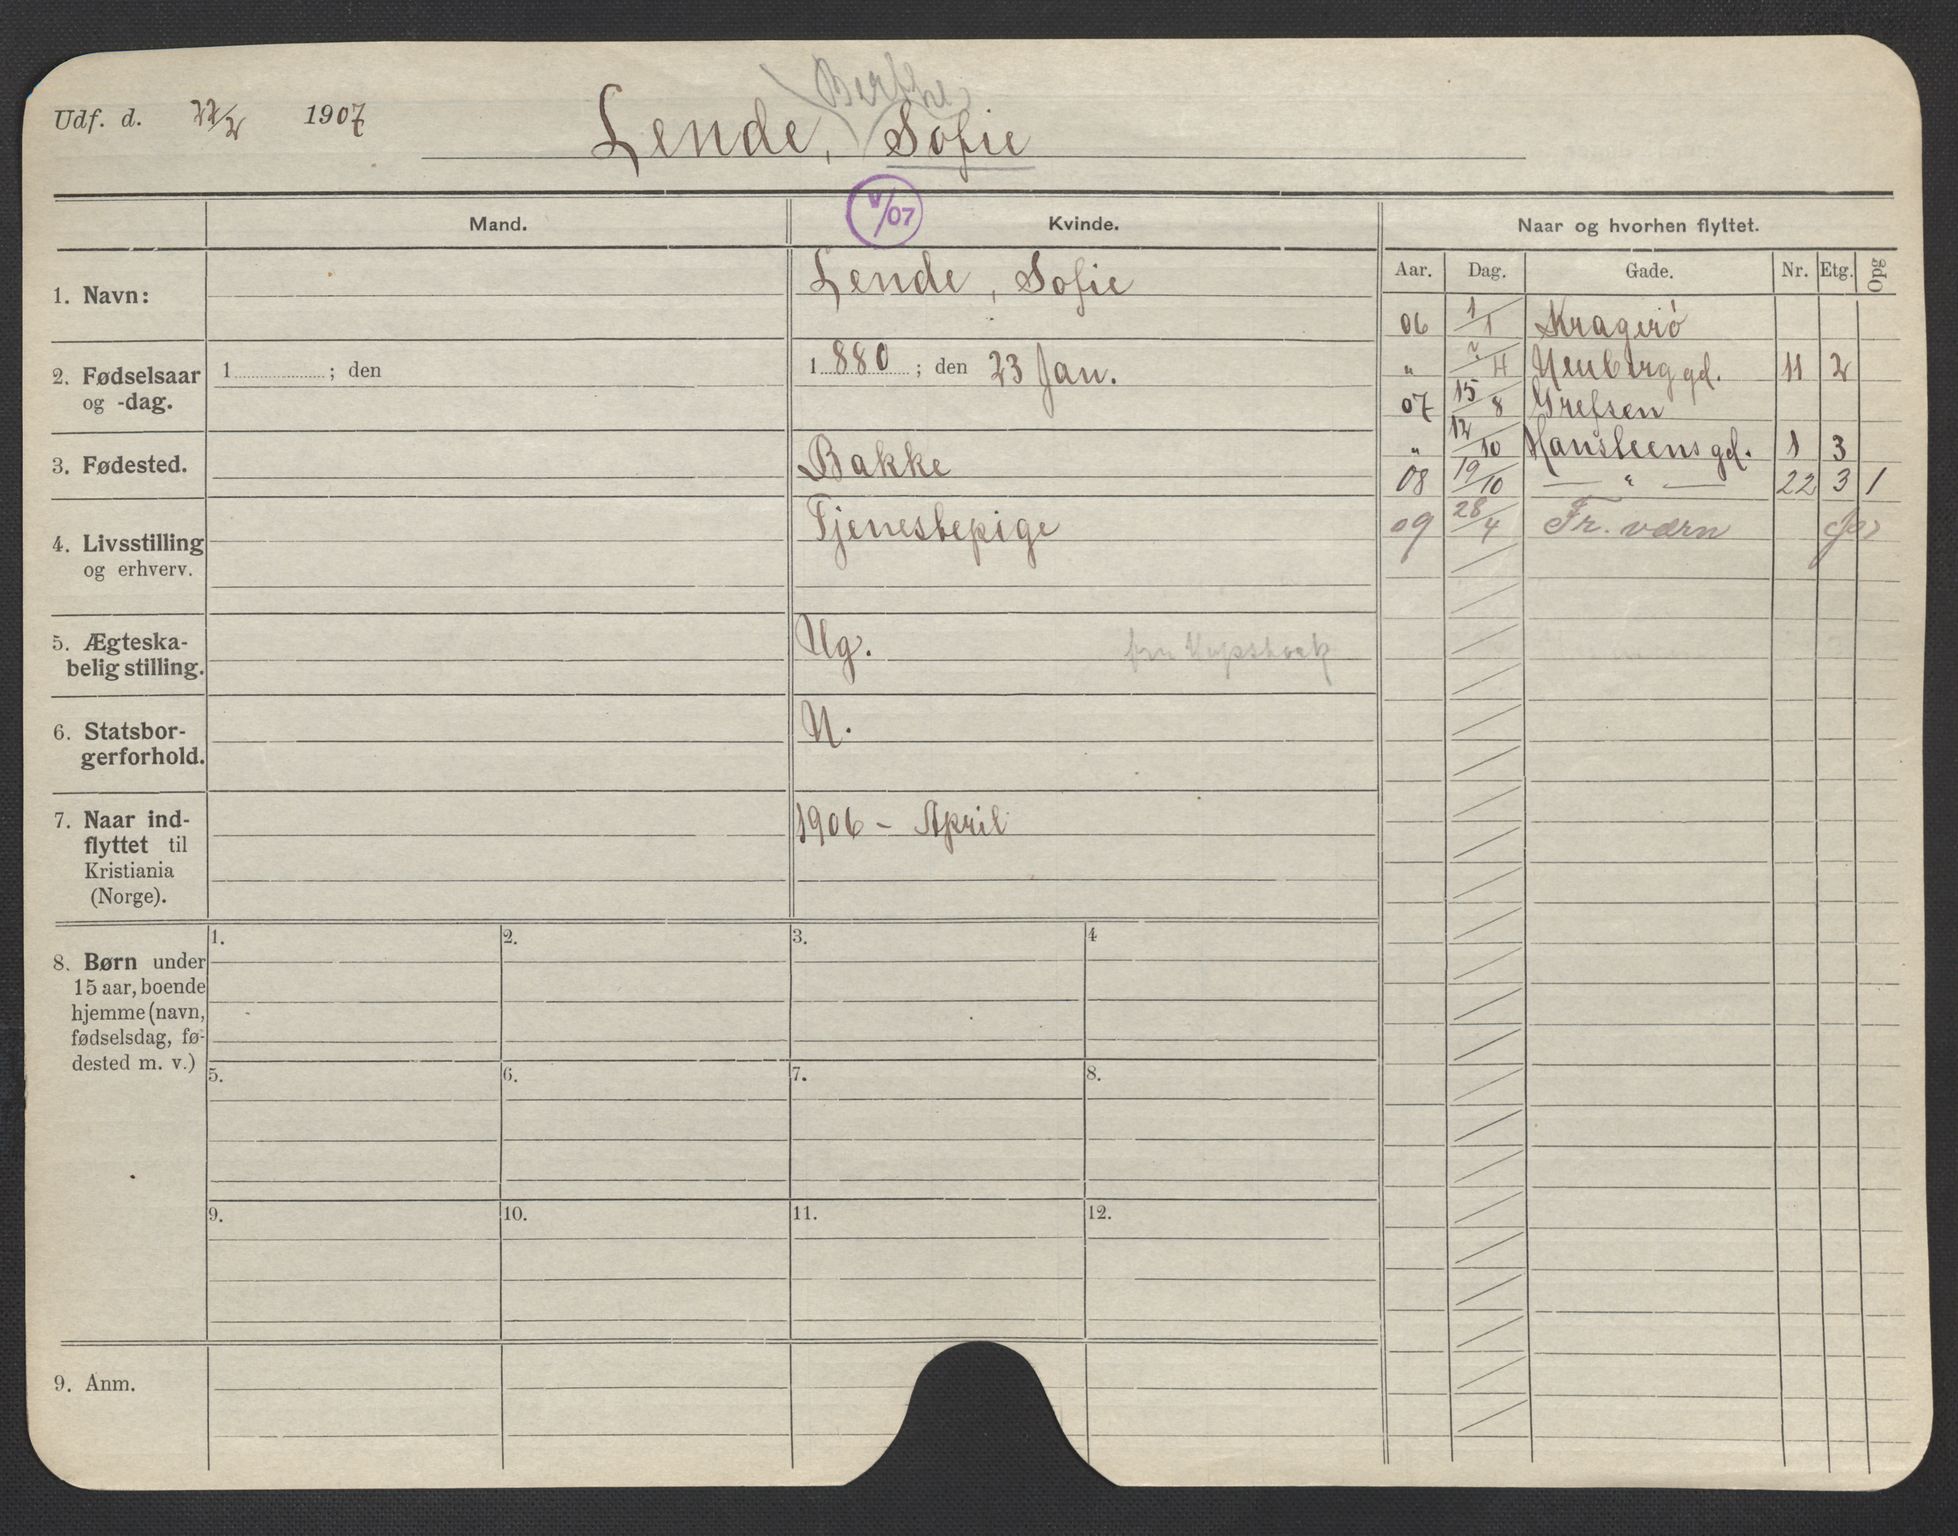 Udf. d. 22/2 1907
Berthe
Lende, Sofie
V/07
Mand.
Kvinde.
Naar og hvorhen flyttet.
Aar. Dag. Gade. Nr. Etg. Opg
1. Navn: Lende, Sofie
06 1/1 Kragerø
2. Fødselsaar og -dag. 1 ; den 1880 ; den 23 Jan.
" 2/4 Neuberggd. 11 2
07 15/8 Grefsen
" 12/10 Hansteensgd. 1 3
3. Fødested. Bakke
08 19/10 — " — 22 3 1
4. Livsstilling og erhverv. Tjenestepige
09 28/4 Fr. værn
5. Ægteska-
belig stilling. Ug.
6. Statsbor-
gerforhold. N.
7. Naar ind-
flyttet til
Kristiania
(Norge). 1906 - April
8. Børn under
15 aar, boende
hjemme (navn,
fødselsdag, fø-
dested m. v.)
1. 2. 3. 4
5. 6. 7. 8.
9. 10. 11. 12.
9. Anm.